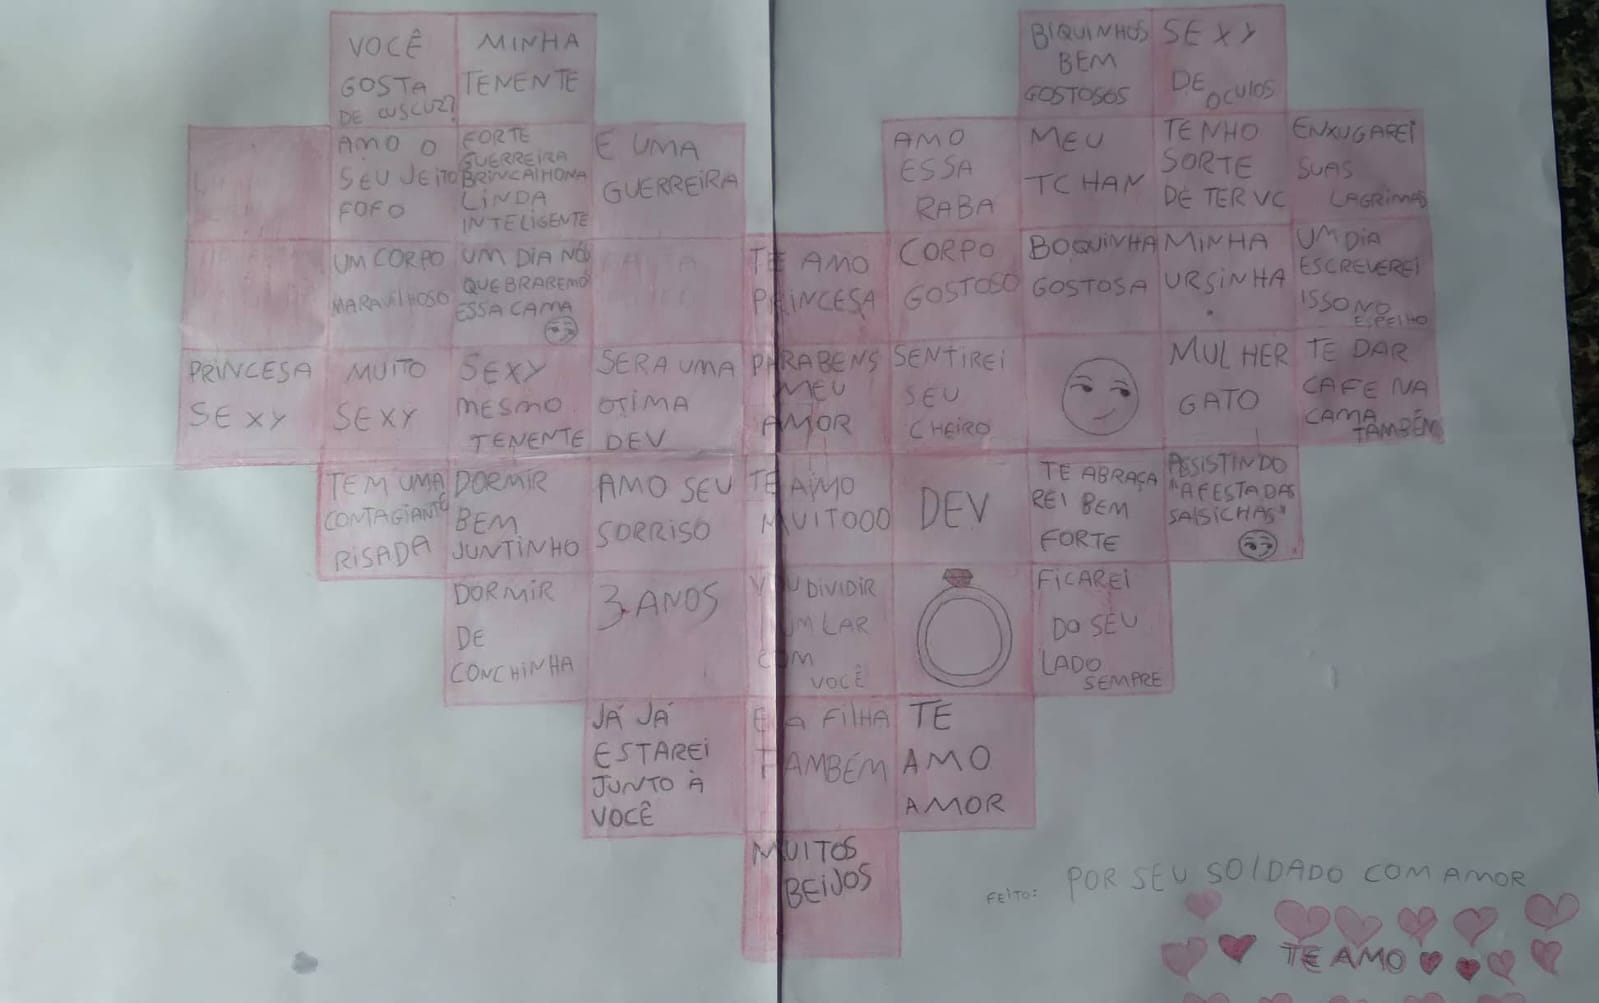 VOCÊ
GOSTA
DE CUSCUZ?
MINHA
TENENTE
BIQUINHOS
BEM
GOSTOSOS
SEXY
DE
OCULOS
AMO O
SEU JEITO
FOFO
FORTE
GUERREIRA
BRINCALHONA
LINDA
INTELIGENTE
E UMA
GUERREIRA
AMO
ESSA
RABA
MEU
TCHAN
TENHO
SORTE
DE TER VC
ENXUGAREI
SUAS
LAGRIMAS
UM CORPO
MARAVILHOSO
UM DIA NÓS
QUEBRAREMOS
ESSA CAMA
FALTA
TE AMO
PRINCESA
CORPO
GOSTOSO
BOQUINHA
GOSTOSA
MINHA
URSINHA
UM DIA
ESCREVEREI
ISSO NO
ESPELHO
PRINCESA
SEXY
MUITO
SEXY
SEXY
MESMO
TENENTE
SERA UMA
OTIMA
DEV
PARABENS
MEU
AMOR
SENTIREI
SEU
CHEIRO
MULHER
GATO
TE DAR
CAFE NA
CAMA
TAMBÉM
TEM UMA
CONTAGIANTE
RISADA
DORMIR
BEM
JUNTINHO
AMO SEU
SORRISO
TE AMO
MUITOOO
DEV
TE ABRAÇA
REI BEM
FORTE
ASSISTINDO
"A FESTA DAS
SALSICHAS"
DORMIR
DE
CONCHINHA
3 ANOS
VOU DIVIDIR
UM LAR
COM
VOCÊ
FICAREI
DO SEU
LADO
SEMPRE
JÁ JÁ
ESTAREI
JUNTO À
VOCÊ
E A FILHA
TAMBÉM
TE
AMO
AMOR
MUITOS
BEIJOS
FEITO: POR SEU SOLDADO COM AMOR
TE AMO